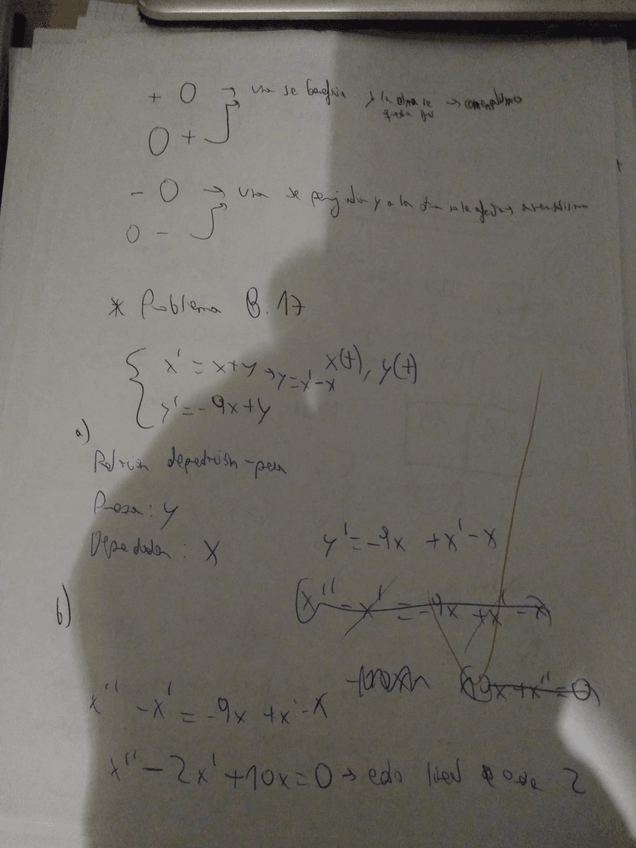 + 0 → una se beneficia y la otra se → comensalismo
0 +
- 0 → una se perjudica y a la otra no le afecta → amensalismo
0 -
* Problema B.17
x' = x+y → y=x'-x x(t), y(t)
y' = -9x+y
a)
Relación depredación-presa
Presa: y
Depredador: x
y' = -9x +x'-x
b)
x'' - x' = -9x + x' - x
x'' - x' = -9x +x'-x
x'' - 2x' + 10x = 0 → edo lineal orden 2